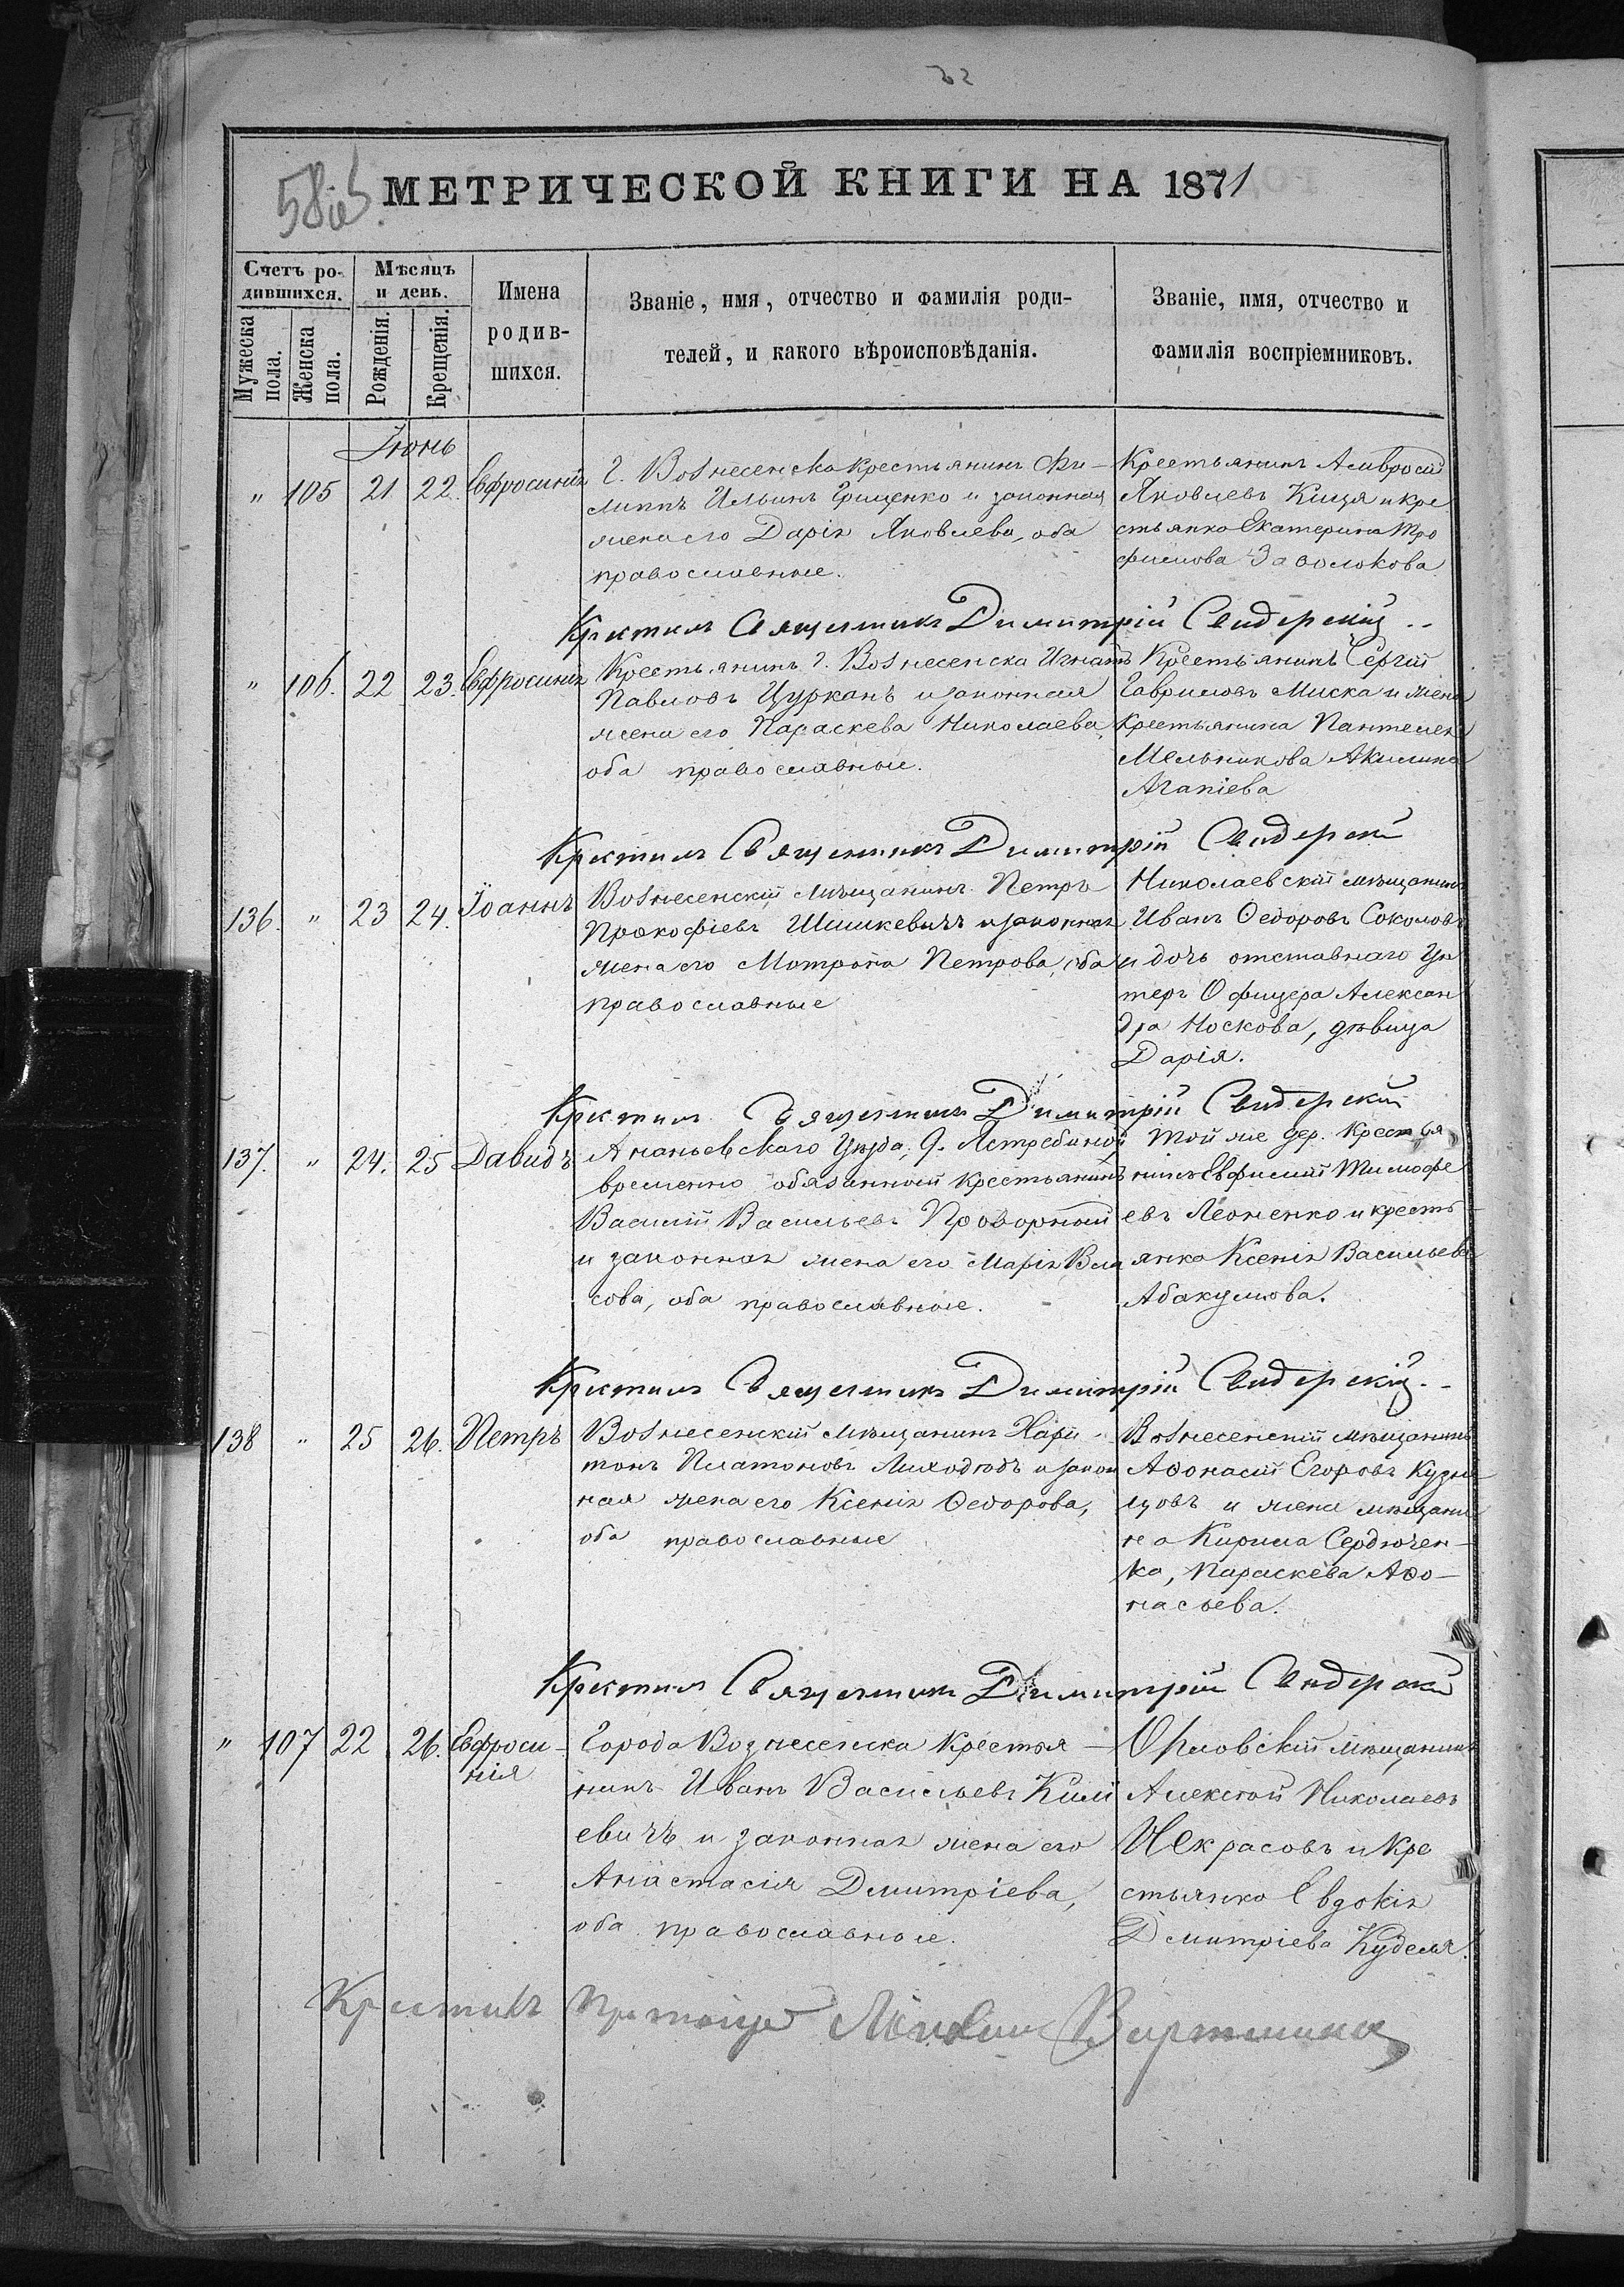 МЕТРИЧЕСКОЙ КНИГИ НА 1871
Счетъ ро-
дившихся.
Мѣсяцъ
и день.
Мужеска пола.
Женска пола.
Рожденія.
Крещенія.
Имена
родив-
шихся.
Званіе, имя, отчество и фамилія роди-
телей, и какого вѣроисповѣданія.
Званіе, имя, отчество и
фамилія воспріемниковъ.
Іюнь
" 105 21 22. Евфросинія
Г. Вознесенска крестьянинъ Фи-
липпъ Ильинъ Грищенко и законная
жена его Дарія Яковлева, оба
православные.
Крестьянинъ Амвросій
Яковлевъ Кица и кре
стьянка Екатерина Тро
фимова Заволокова
Крестилъ Священникъ Димитрій Свидерскій
" 106. 22 23. Евфросинія
Крестьянинъ г. Вознесенска Игнатъ
Павловъ Цурканъ и законная
жена его Параскева Николаева,
оба православные.
Крестьянинъ Сергій
Гавриловъ Миска и жена
крестьянина Пантелея
Мельникова Акилина
Агапіева
Крестилъ Священникъ Димитрій Свидерскій
136. " 23 24. Іоаннъ
Вознесенскій мѣщанинъ Петръ
Прокофіевъ Шишкевичъ и законная
жена его Матрона Петрова, оба
православные
Николаевскій мѣщанинъ
Иванъ Ѳедоровъ Соколовъ
и дочь отставнаго Ун
теръ Офицера Алексан
дра Носкова, дѣвица
Дарія.
Крестилъ Священникъ Димитрій Свидерскій
137. " 24. 25 Давидъ
Ананьевскаго Уѣзда, д. Ястребиной
временно обязанный крестьянинъ
Василій Васильевъ Проворный
и законная жена его Марія Вла
сова, оба православные.
Той же дер. крестья
нинъ Евфимій Тимофе
евъ Леоненко и кресть
янка Ксенія Васильева
Абакумова.
Крестилъ Священникъ Димитрій Свидерскій
138 " 25 26. Петръ
Вознесенскій мѣщанинъ Хари
тонъ Платоновъ Лиходѣдъ и закон
ная жена его Ксенія Ѳедорова,
оба православные
Вознесенскій мѣщанинъ
Аѳонасій Егоровъ Кузне
цовъ и жена мѣщани
на Кирила Сердючен-
ка, Параскева Аѳо-
насьева.
Крестилъ Священникъ Димитрій Свидерскій
" 107 22 26. Евфроси-
нія
Города Вознесенска крестья-
нинъ Иванъ Васильевъ Клий
евичъ и законная жена его
Анастасія Дмитріева,
оба православные.
Орловскій мѣщанинъ
Алексѣй Николаевъ
Некрасовъ и кре
стьянка Евдокія
Дмитріева Куделя.
Крестилъ